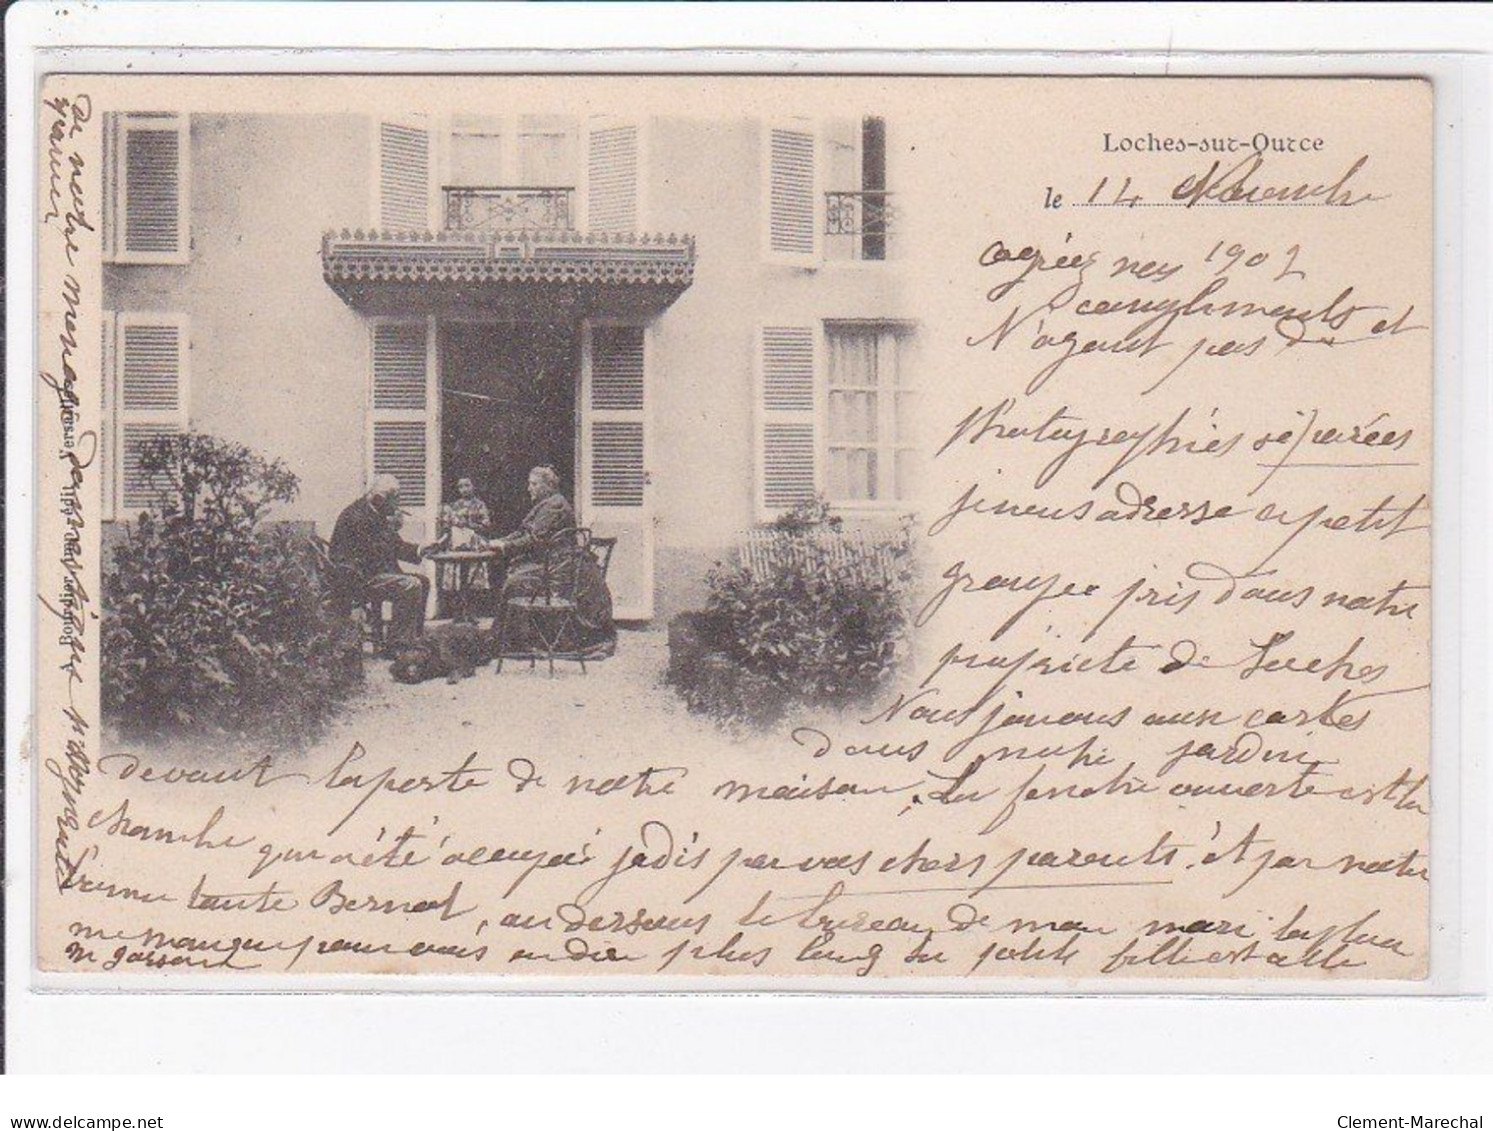 Loches-sur-Ource
le 14 Novembre
1902
agréez nos
compliments et
N'ayant pas de
photographies séparées
je vous adresse ce petit
groupe pris dans notre
propriété de Loches
Nous jouons aux cartes
dans notre jardin
devant la porte de notre maison. La fenêtre ouverte est la
chambre qui a été occupée jadis par vos chers parents. et par notre
tante Bernot, au dessous le bureau de mon mari la place
me manque pour vous en dire plus long la petite fille est celle
de notre menagère domestique
m garson
delcampe.net
Clement-Marechal